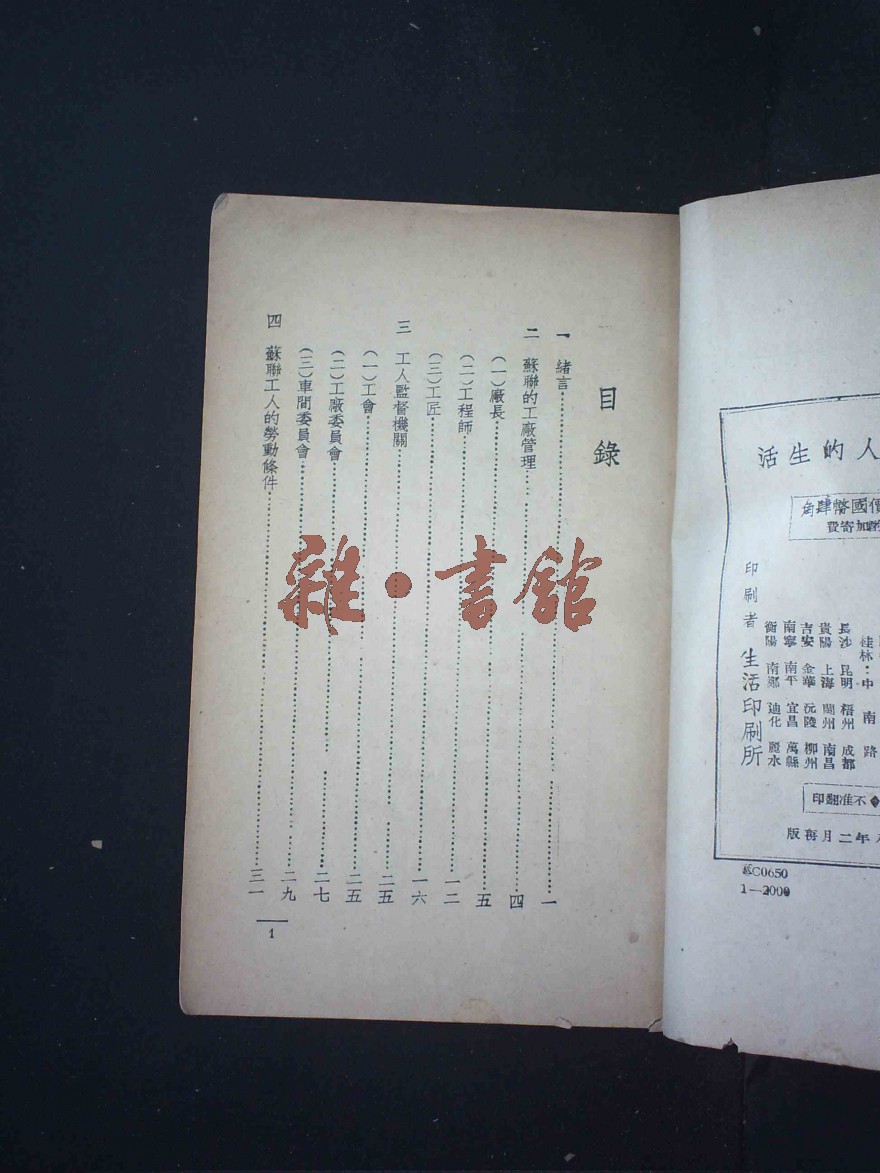 目錄
一 緒言 一
二 蘇聯的工廠管理 四
(一)廠長 五
(二)工程師 一二
(三)工匠 一六
三 工人監督機關 二五
(一)工會 二五
(二)工廠委員會 二七
(三)車間委員會 二九
四 蘇聯工人的勞動條件 三一
1
雜·書館
人的生活
價國幣肆角
加寄費
印刷者 生活印刷所
桂林·中南路
長沙 昆明 梧州 成都
貴陽 上海 蘭州 南昌
吉安 金華 沅陵 柳州
南寧 南平 宜昌 萬縣
衡陽 南鄭 迪化 麗水
不准翻印
年二月再版
C0650
1—2000